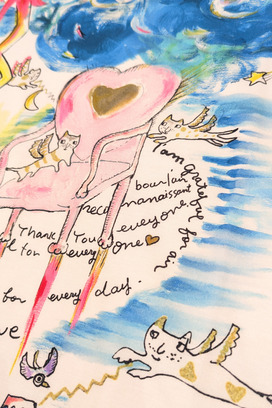 I am grateful for an
bour/an
reconnaissant
Thank You everyone
for every one
for every day.
ve